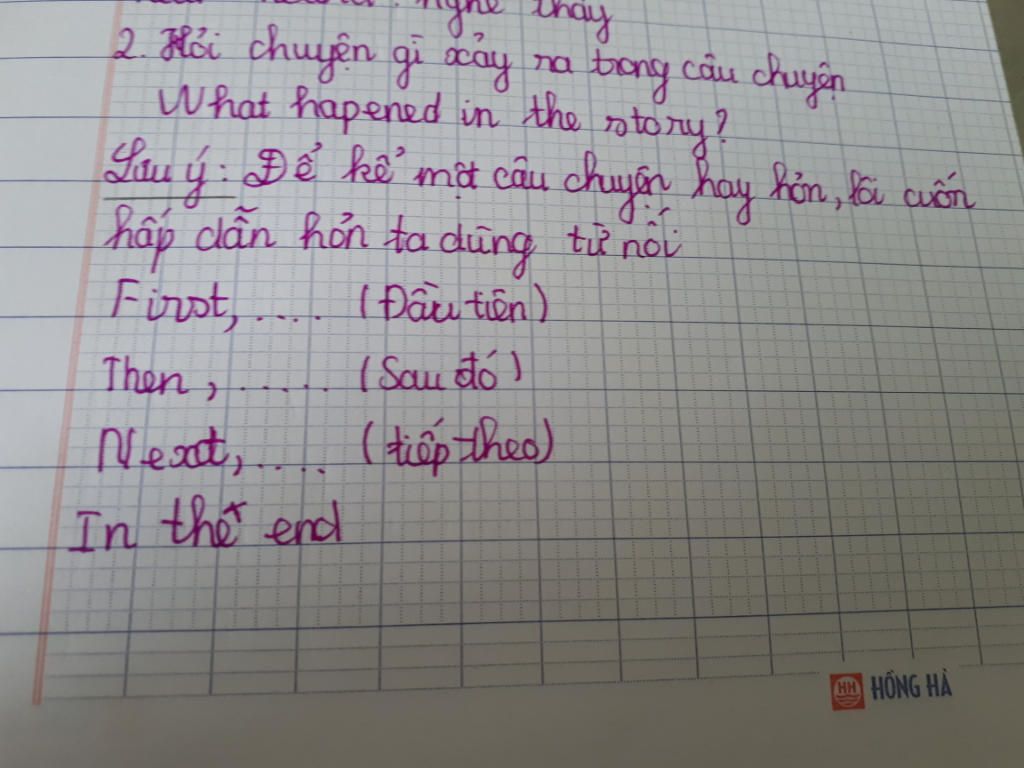 nghe thấy
2. Hỏi chuyện gì xảy ra trong câu chuyện
What hapened in the story?
Lưu ý: Để kể một câu chuyện hay hơn, lôi cuốn
hấp dẫn hơn ta dùng từ nối
First, .... (Đầu tiên)
Then, ..... (Sau đó)
Next, .... (tiếp theo)
In the end
HH HỒNG HÀ